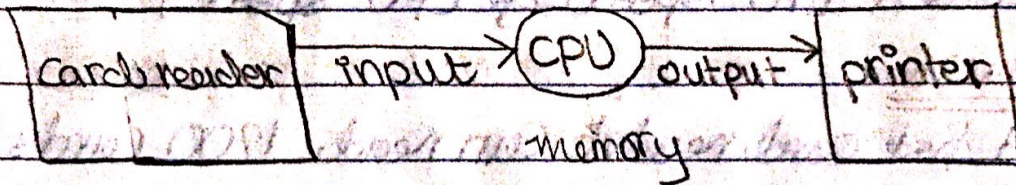 card reader input CPU output printer
memory